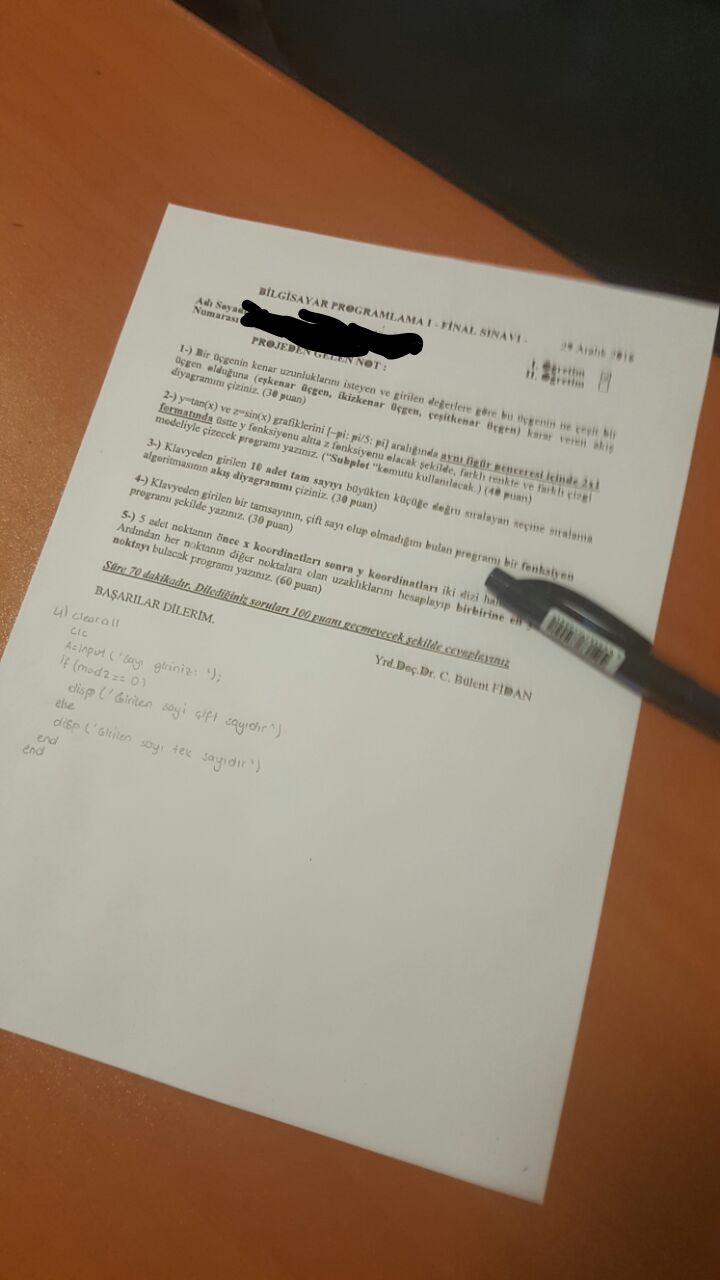 BİLGİSAYAR PROGRAMLAMA I - FİNAL SINAVI -
20 Aralık
Adı Soyadı
Numarası
I. Öğretim
II. Öğretim
PROJEDEN GELEN NOT :
1-) Bir üçgenin kenar uzunluklarını isteyen ve girilen değerlere göre bu üçgenin ne çeşit bir
üçgen olduğuna (eşkenar üçgen, ikizkenar üçgen, çeşitkenar üçgen) karar veren akış
diyagramını çiziniz. (30 puan)
2-) y=tan(x) ve z=sin(x) grafiklerini [-pi: pi/5: pi] aralığında aynı figür penceresi içinde 2x1
formatında üstte y fonksiyonu altta z fonksiyonu olacak şekilde, farklı renkte ve farklı çizgi
modeliyle çizecek programı yazınız. ("Subplot "komutu kullanılacak.) (40 puan)
3-) Klavyeden girilen 10 adet tam sayıyı büyükten küçüğe doğru sıralayan seçme sıralama
algoritmasının akış diyagramını çiziniz. (30 puan)
4-) Klavyeden girilen bir tamsayının, çift sayı olup olmadığını bulan programı bir fonksiyon
programı şekilde yazınız. (30 puan)
5-) 5 adet noktanın önce x koordinatları sonra y koordinatları iki dizi
Ardından her noktanın diğer noktalara olan uzaklıklarını hesaplayıp birbirine en
noktayı bulacak programı yazınız. (60 puan)
Süre 70 dakikadır. Dilediğiniz soruları 100 puanı geçmeyecek şekilde cevaplayınız
BAŞARILAR DİLERİM.
Yrd.Doç.Dr. C. Bülent FİDAN
4) clear all
clc
A=input ('sayı giriniz: ');
if (mod2==0)
disp ('Girilen sayı çift sayıdır')
else
disp ('Girilen sayı tek sayıdır')
end
end